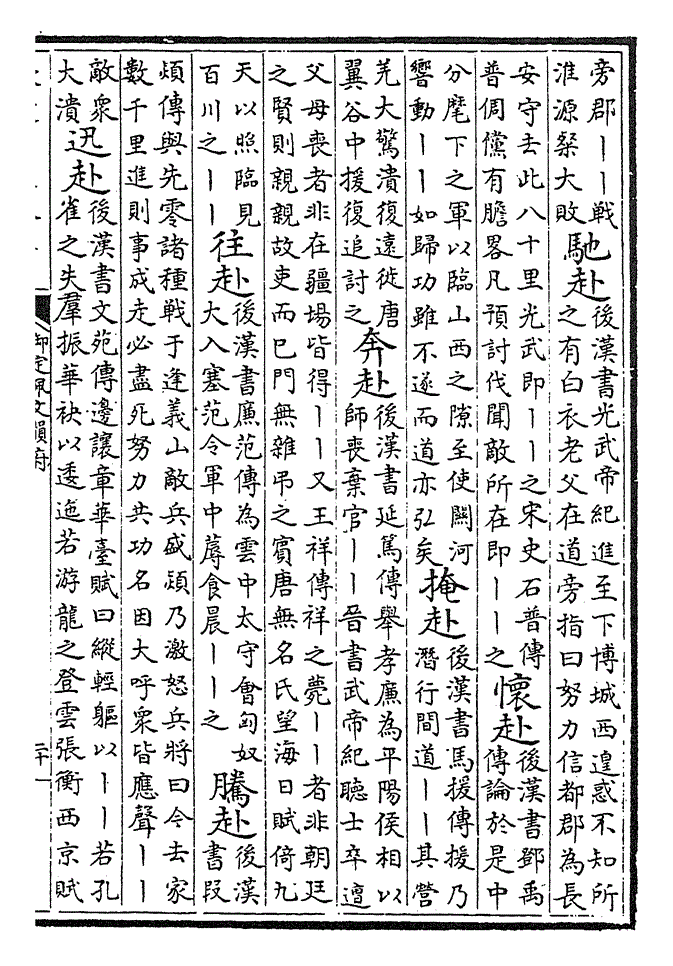 旁郡丨丨戰
淮源桀大敗
馳赴
後漢書光武帝紀進至下博城西遑惑不知所
之有白衣老父在道旁指曰努力信都郡為長
安守去此八十里光武即丨丨之宋史石普傳
普倜儻有膽畧凡預討伐聞敵所在即丨丨之
懷赴
後漢書鄧禹
傳論於是中
分麾下之軍以臨山西之隙至使關河
響動丨丨如歸功雖不遂而道亦弘矣
掩赴
後漢書馬援傳援乃
潛行間道丨丨其營
羌大驚潰復遠徙唐
翼谷中援復追討之
奔赴
後漢書延篤傳舉孝廉為平陽侯相以
師喪棄官丨丨晉書武帝紀聽士卒遭
父母喪者非在疆場皆得丨丨又王祥傳祥之薨丨丨者非朝廷
之賢則親親故吏而已門無雜弔之賓唐無名氏望海日賦倚九
天以照臨見
百川之丨丨
往赴
後漢書廉范傳為雲中太守會匈奴
大入塞范令軍中蓐食晨丨丨之
騰赴
後漢
書段
熲傳與先零諸種戰于逢義山敵兵盛熲乃激怒兵將曰今去家
數千里進則事成走必盡死努力共功名因大呼衆皆應聲丨丨
敵衆
大潰
迅赴
後漢書文苑傳邊讓章華臺賦曰縱輕軀以丨丨若孔
雀之失羣振華袂以逶迤若游龍之登雲張衡西京賦
御定佩文韻府